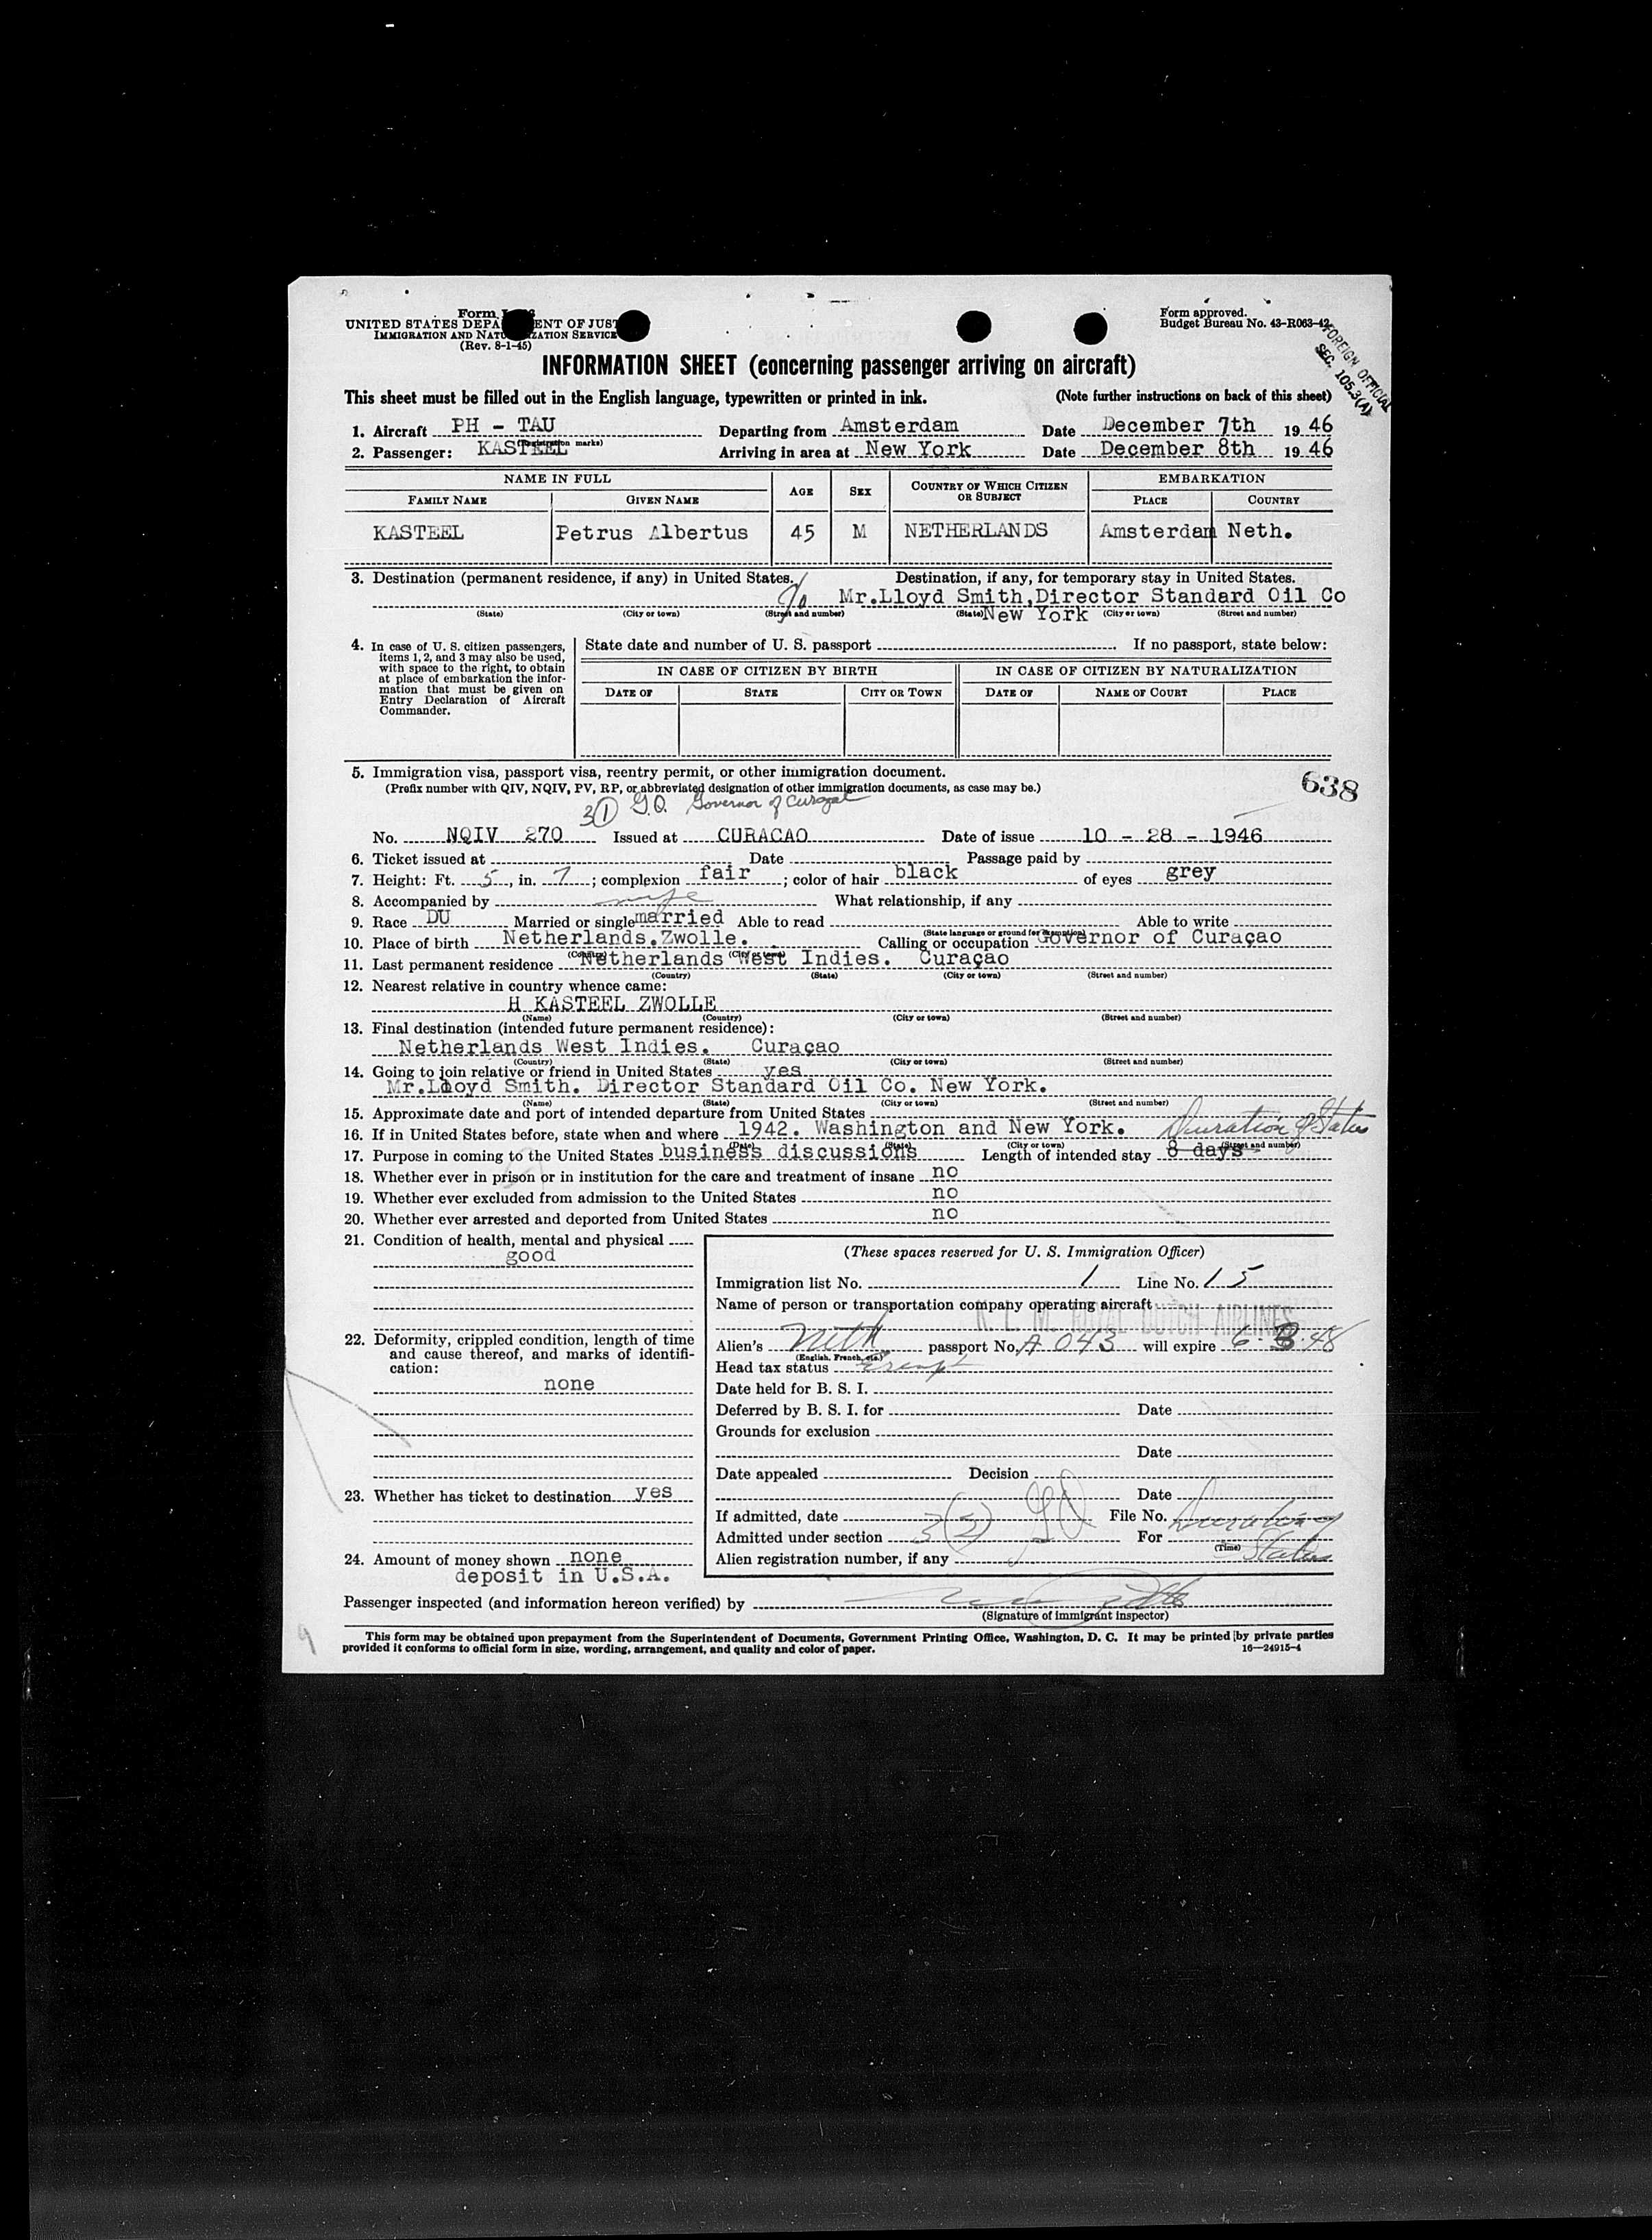 Form
UNITED STATES DEPA ENT OF JUST
IMMIGRATION AND NATU ZATION SERVICE
(Rev. 8-1-45)
Form approved.
Budget Bureau No. 43-R063-42
FOREIGN OFFICIAL
SEC. 105.3(A)
INFORMATION SHEET (concerning passenger arriving on aircraft)
This sheet must be filled out in the English language, typewritten or printed in ink. (Note further instructions on back of this sheet)
1. Aircraft PH - TAU Departing from Amsterdam Date December 7th 19 46
(Registration marks)
2. Passenger: KASTEEL Arriving in area at New York Date December 8th 19 46
NAME IN FULL AGE SEX COUNTRY OF WHICH CITIZEN OR SUBJECT EMBARKATION
FAMILY NAME GIVEN NAME PLACE COUNTRY
KASTEEL Petrus Albertus 45 M NETHERLANDS Amsterdam Neth.
3. Destination (permanent residence, if any) in United States. Destination, if any, for temporary stay in United States.
c/o Mr.Lloyd Smith,Director Standard Oil Co
(State) (City or town) (Street and number) (State) New York (City or town) (Street and number)
4. In case of U. S. citizen passengers, items 1, 2, and 3 may also be used, with space to the right, to obtain at place of embarkation the information that must be given on Entry Declaration of Aircraft Commander.
State date and number of U. S. passport If no passport, state below:
IN CASE OF CITIZEN BY BIRTH IN CASE OF CITIZEN BY NATURALIZATION
DATE OF STATE CITY OR TOWN DATE OF NAME OF COURT PLACE
5. Immigration visa, passport visa, reentry permit, or other immigration document.
(Prefix number with QIV, NQIV, PV, RP, or abbreviated designation of other immigration documents, as case may be.)
638
3(1) G.O. Governor of Curaçao
No. NQIV 270 Issued at CURACAO Date of issue 10 - 28 - 1946
6. Ticket issued at Date Passage paid by
7. Height: Ft. 5, in. 7; complexion fair; color of hair black of eyes grey
8. Accompanied by wife What relationship, if any
9. Race DU Married or single married Able to read Able to write
(State language or ground for exemption)
10. Place of birth Netherlands. Zwolle. Calling or occupation Governor of Curaçao
(Country) (City or town)
11. Last permanent residence Netherlands West Indies. Curaçao
(Country) (State) (City or town) (Street and number)
12. Nearest relative in country whence came:
H KASTEEL ZWOLLE
(Name) (Country) (City or town) (Street and number)
13. Final destination (intended future permanent residence):
Netherlands West Indies. Curaçao
(Country) (State) (City or town) (Street and number)
14. Going to join relative or friend in United States yes
Mr.Lloyd Smith. Director Standard Oil Co. New York.
(Name) (State) (City or town) (Street and number)
15. Approximate date and port of intended departure from United States
16. If in United States before, state when and where 1942. Washington and New York. Duration of Status
(Date) (State) (City or town) (Street and number)
17. Purpose in coming to the United States business discussions Length of intended stay 8 days
18. Whether ever in prison or in institution for the care and treatment of insane no
19. Whether ever excluded from admission to the United States no
20. Whether ever arrested and deported from United States no
21. Condition of health, mental and physical
good
22. Deformity, crippled condition, length of time and cause thereof, and marks of identification:
none
23. Whether has ticket to destination yes
24. Amount of money shown none
deposit in U.S.A.
(These spaces reserved for U. S. Immigration Officer)
Immigration list No. 1 Line No. 15
Name of person or transportation company operating aircraft
K. L. M. ROYAL DUTCH AIRLINES
Alien's Neth passport No. A 043 will expire 6-3-48
(English, French, etc.)
Head tax status Exempt
Date held for B. S. I.
Deferred by B. S. I. for Date
Grounds for exclusion
Date
Date appealed Decision
Date
If admitted, date File No.
Admitted under section 3(3) GO For Status
(Time)
Alien registration number, if any
Passenger inspected (and information hereon verified) by
(Signature of immigrant inspector)
This form may be obtained upon prepayment from the Superintendent of Documents, Government Printing Office, Washington, D. C. It may be printed by private parties
provided it conforms to official form in size, wording, arrangement, and quality and color of paper. 16—24915-4